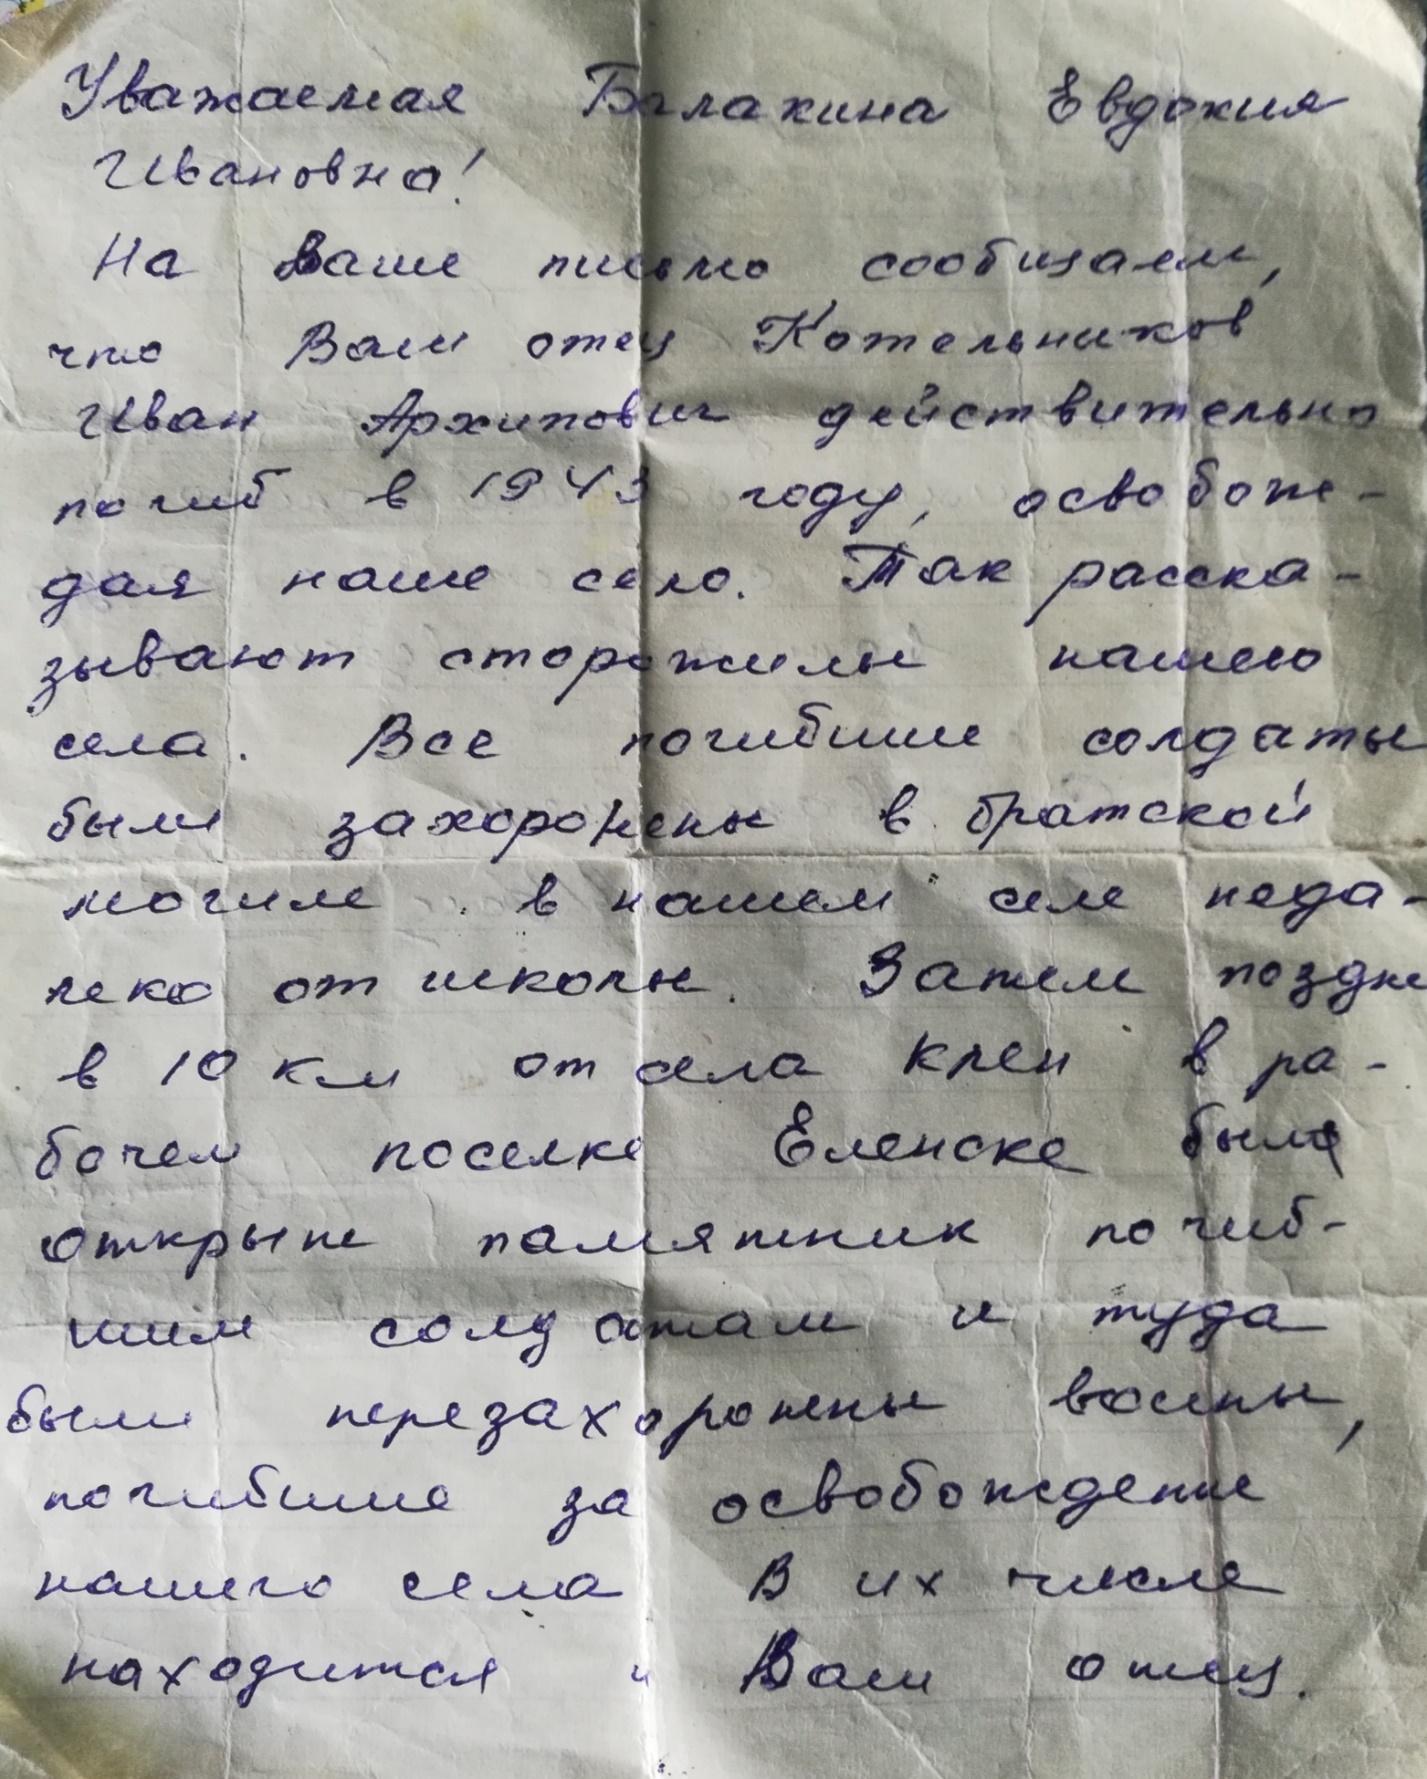 Уважаемая Балакина Евдокия
Ивановна!
На Ваше письмо сообщаем,
что Ваш отец Котельников
Иван Архипович действительно
погиб в 1943 году, освобож-
дая наше село. Так расска-
зывают сторожилы нашего
села. Все погибшие солдаты
были захоронены в братской
могиле в нашем селе неда-
леко от школы. Затем поздне
в 10 км от села Клен в ра-
бочем поселке Еленске был
открыт памятник погиб-
шим солдатам и туда
были перезахоронены воины,
погибшие за освобождение
нашего села В их числе
находится и Ваш отец.